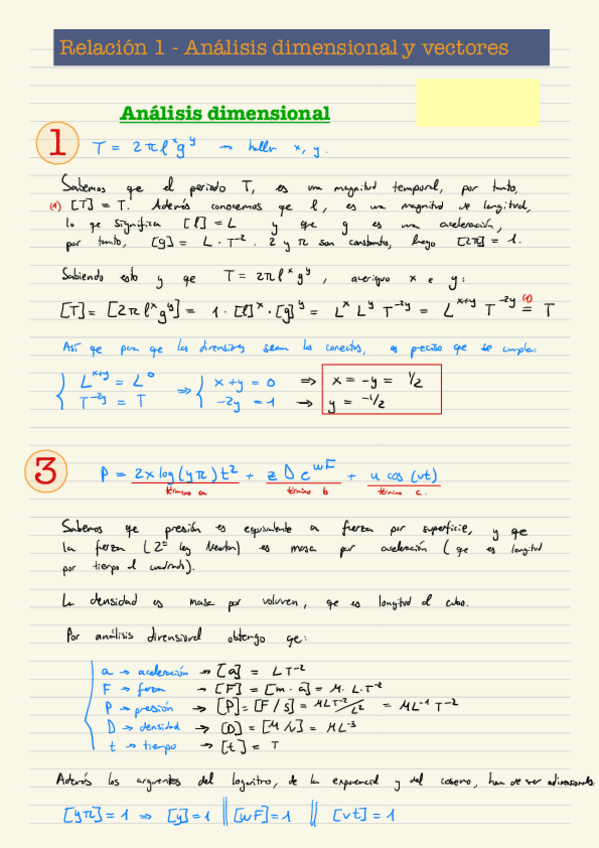 Relación 1 - Análisis dimensional y vectores
Análisis dimensional
1 T = 2πl^x g^y → hallar x, y.
Sabemos que el periodo T, es una magnitud temporal, por tanto,
(1) [T] = T. Además conocemos que l, es una magnitud de longitud,
lo que significa [l] = L y que g es una aceleración,
por tanto, [g] = L · T^-2. 2 y π son constantes, luego [2π] = 1.
Sabiendo esto y que T = 2πl^x g^y, averiguo x e y:
[T] = [2πl^x g^y] = 1 · [l]^x · [g]^y = L^x L^y T^-2y = L^x+y T^-2y (1)= T
Así que para que las dimensiones sean las correctas, es preciso que se cumpla:
{ L^x+y = L^0 ⇒ { x + y = 0 ⇒ x = -y = 1/2
T^-2y = T -2y = 1 → y = -1/2
3 P = 2x log(yπ)t^2 + z D e^wF + u cos(vt)
término a término b término c.
Sabemos que presión es equivalente a fuerza por superficie, y que
la fuerza (2ª ley Newton) es masa por aceleración (que es longitud
por tiempo al cuadrado).
La densidad es masa por volumen, que es longitud al cubo.
Por análisis dimensional obtengo que:
a → aceleración → [a] = LT^-2
F → fuerza → [F] = [m · a] = M · L · T^-2
P → presión → [P] = [F/S] = MLT^-2/L^2 = ML^-1 T^-2
D → densidad → [D] = [M/V] = ML^-3
t → tiempo → [t] = T
Además los argumentos del logaritmo, de la exponencial y del coseno, han de ser adimensionales
[yπ] = 1 ⇒ [y] = 1 || [wF] = 1 || [vt] = 1